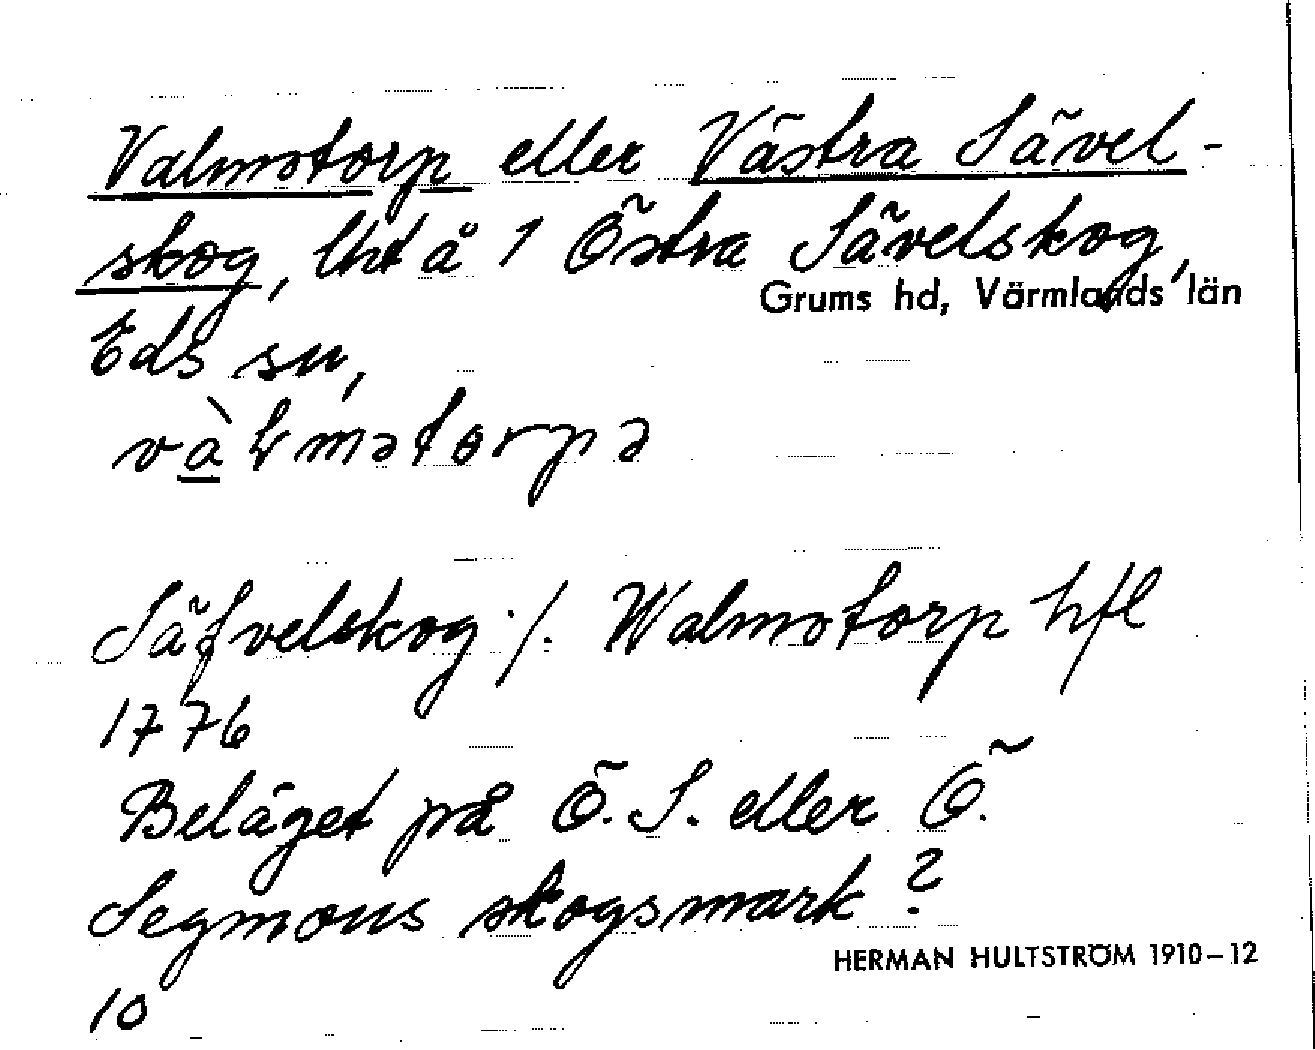 Valmotorp eller Västra Sävel-
skog, lht å 1 Östra Sävelskog,
Grums hd, Värmlands län
Eds sn,
vàlmətorpə
Säfvelskog ·/. Walmotorp hfl
1776
Beläget på Ö. S. eller Ö.
Segmons skogsmark?
HERMAN HULTSTRÖM 1910–12
10